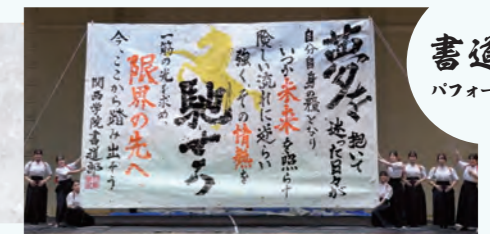 夢を抱いて
迷った日々が
自分自身の糧となり
いつか未来を照らす
険しい流れに逆らい
強く、その情熱を
馳せろ
一筋の光を求め、
限界の先へ
今、ここから踏み出そう
関西学院書道部
書道
パフォー